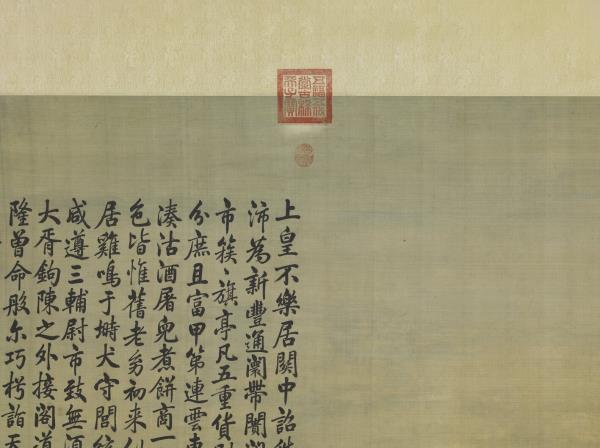 上皇不樂居關中詔
沛為新豐通闤帶闠
市簇〻旗亭凡五重貨
分庶且富甲第連雲
湊沽酒屠兔煮餅商一
邑皆惟舊老幼初来
居雞鳴于塒犬守閭
咸遵三輔尉市致無
大胥鉤陳之外接閣道
隆曾命般尓巧楞詣